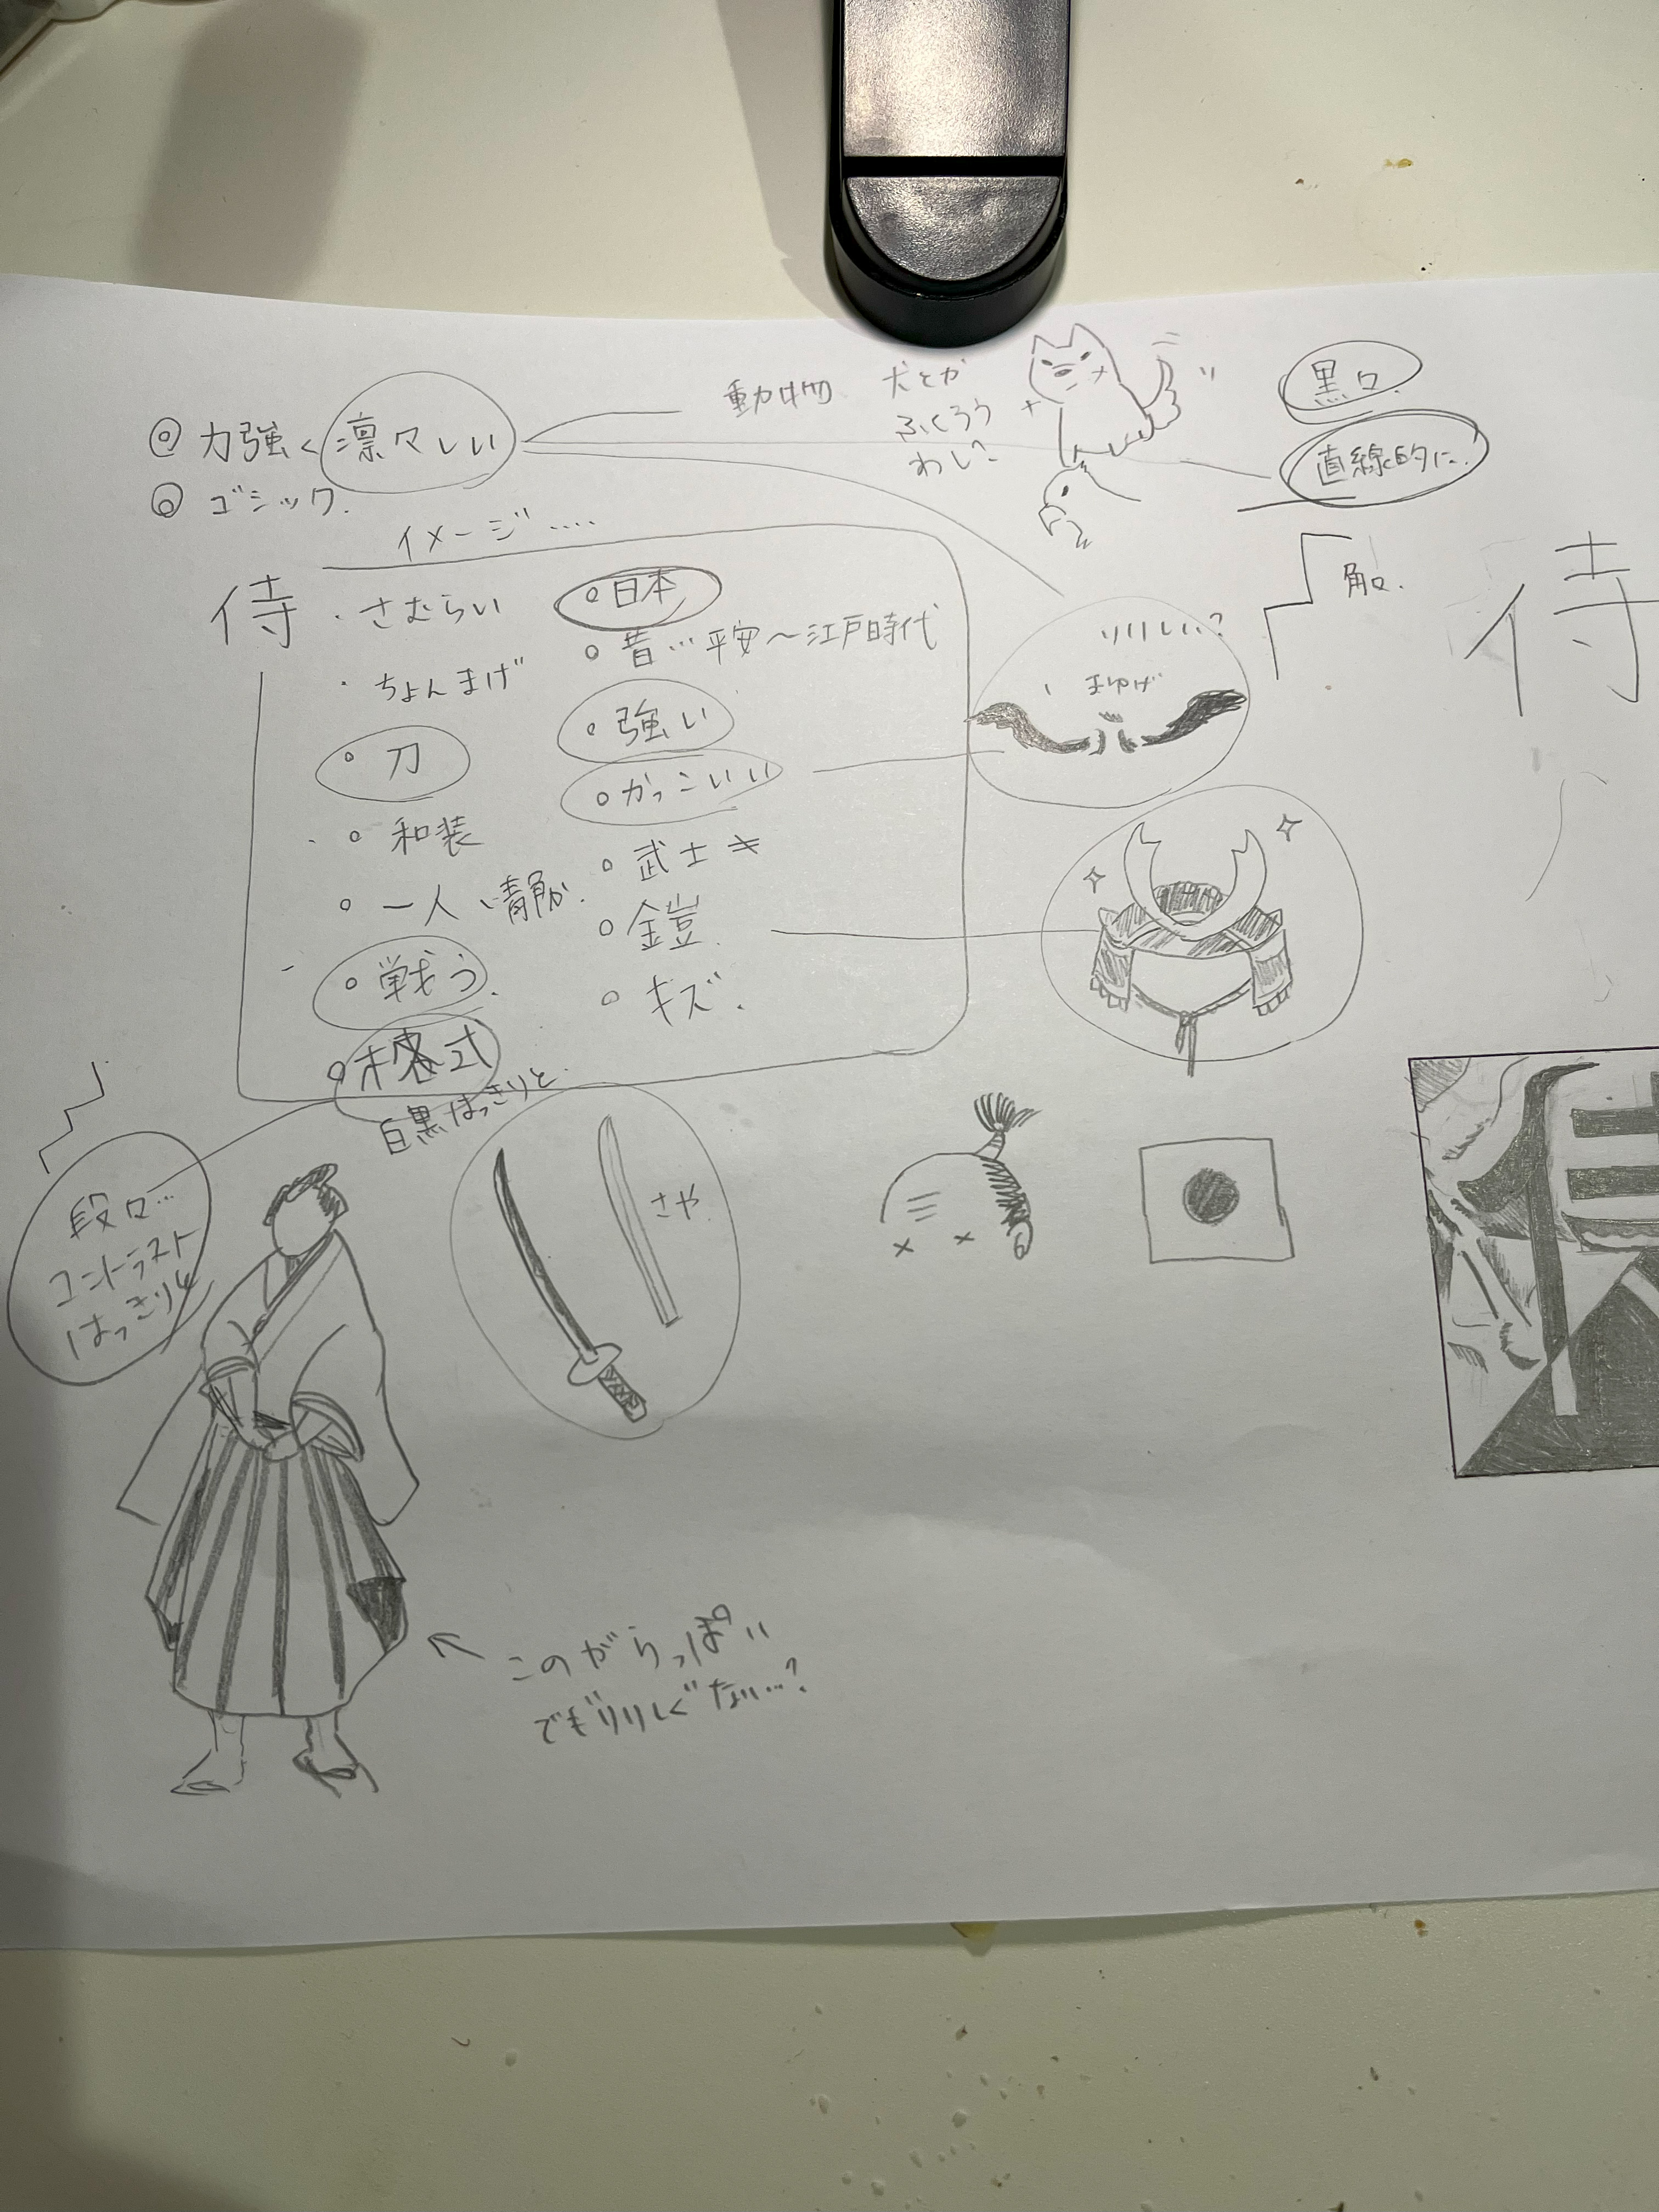 ◎ 力強く凛々しい
◎ ゴシック.
動物 犬とか
ふくろう
わし?
黒々.
直線的に.
イメージ‥‥
侍 ・さむらい
・ちょんまげ
○ 刀
○ 和装
○ 一人、静か.
○ 戦う.
○ 格式
○ 日本
○ 昔…平安〜江戸時代
○ 強い
○ かっこいい
○ 武士
○ 鎧.
○ キズ.
りりしい?
まゆげ
角々.
侍
白黒はっきりと.
段々…
コントラスト
はっきりと
さや.
侍
このがらっぽい
でもりりしくない…?